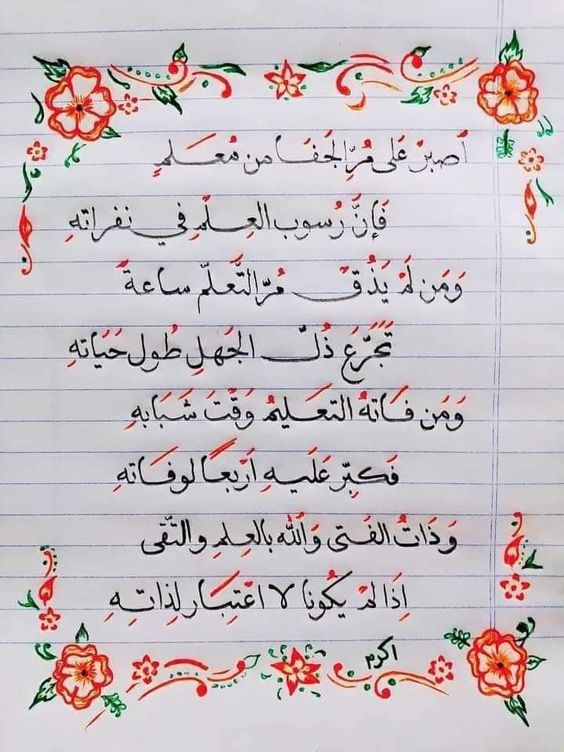 أَصبِرْ عَلى مُرِّ الجَفَا من مُعَلمٍ
فَإِنَّ رُسوب العِلْمِ في نفراتهِ
وَمَن لَمْ يَذُقْ مُرّ التَّعلّم ساعةً
تَجَرَّعَ ذُلّ الجَهلِ طُول حَيَاتهِ
وَمَن فَاتهُ التعَليمُ وَقْتَ شَبَابهِ
فَكبِّر عَلَيهِ أَربعاً لوفَاتهِ
وَذَاتُ الفَتى وَاللهِ بالعِلمِ والتُّقى
إِذَا لمْ يكُونا لا اعْتِبَار لِذاتهِ
اكرم